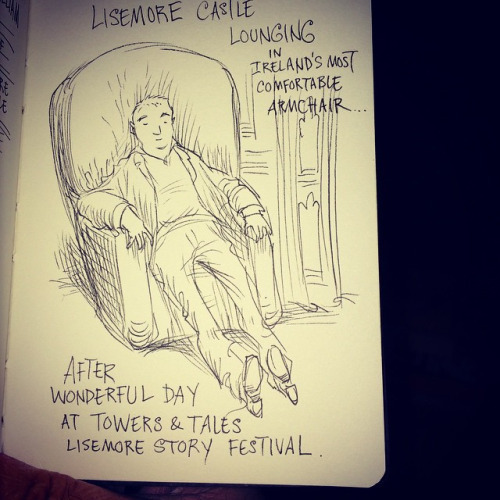 LISEMORE CASTLE
LOUNGING
IN
IRELAND'S MOST
COMFORTABLE
ARMCHAIR...
AFTER
WONDERFUL DAY
AT TOWERS & TALES
LISEMORE STORY FESTIVAL.